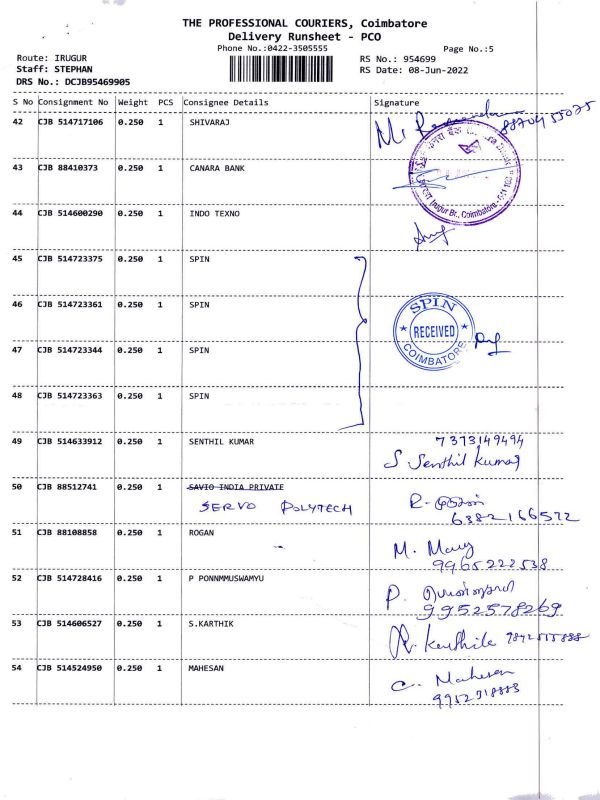 THE PROFESSIONAL COURIERS, Coimbatore
Delivery Runsheet - PCO
Phone No.:0422-3505555
Page No.:5
Route: IRUGUR
RS No.: 954699
Staff: STEPHAN
RS Date: 08-Jun-2022
DRS No.: DCJB95469905
S No Consignment No Weight PCS Consignee Details Signature
42 CJB 514717106 0.250 1 SHIVARAJ
8870455075
43 CJB 88410373 0.250 1 CANARA BANK
Irugur Br., Coimbatore - 641 103
44 CJB 514600290 0.250 1 INDO TEXNO
45 CJB 514723375 0.250 1 SPIN
46 CJB 514723361 0.250 1 SPIN
SPIN
RECEIVED
COIMBATORE
47 CJB 514723344 0.250 1 SPIN
48 CJB 514723363 0.250 1 SPIN
49 CJB 514633912 0.250 1 SENTHIL KUMAR
7373149494
S Senthil kumar
50 CJB 88512741 0.250 1 SAVIO INDIA PRIVATE
SERVO POLYTECH
6382166572
51 CJB 88108858 0.250 1 ROGAN
M. Many
9965222538
52 CJB 514728416 0.250 1 P PONNMMUSWAMYU
P.
9952578269
53 CJB 514606527 0.250 1 S.KARTHIK
R. Karthik 9842555888
54 CJB 514524950 0.250 1 MAHESAN
C. Mahesan
9952918883